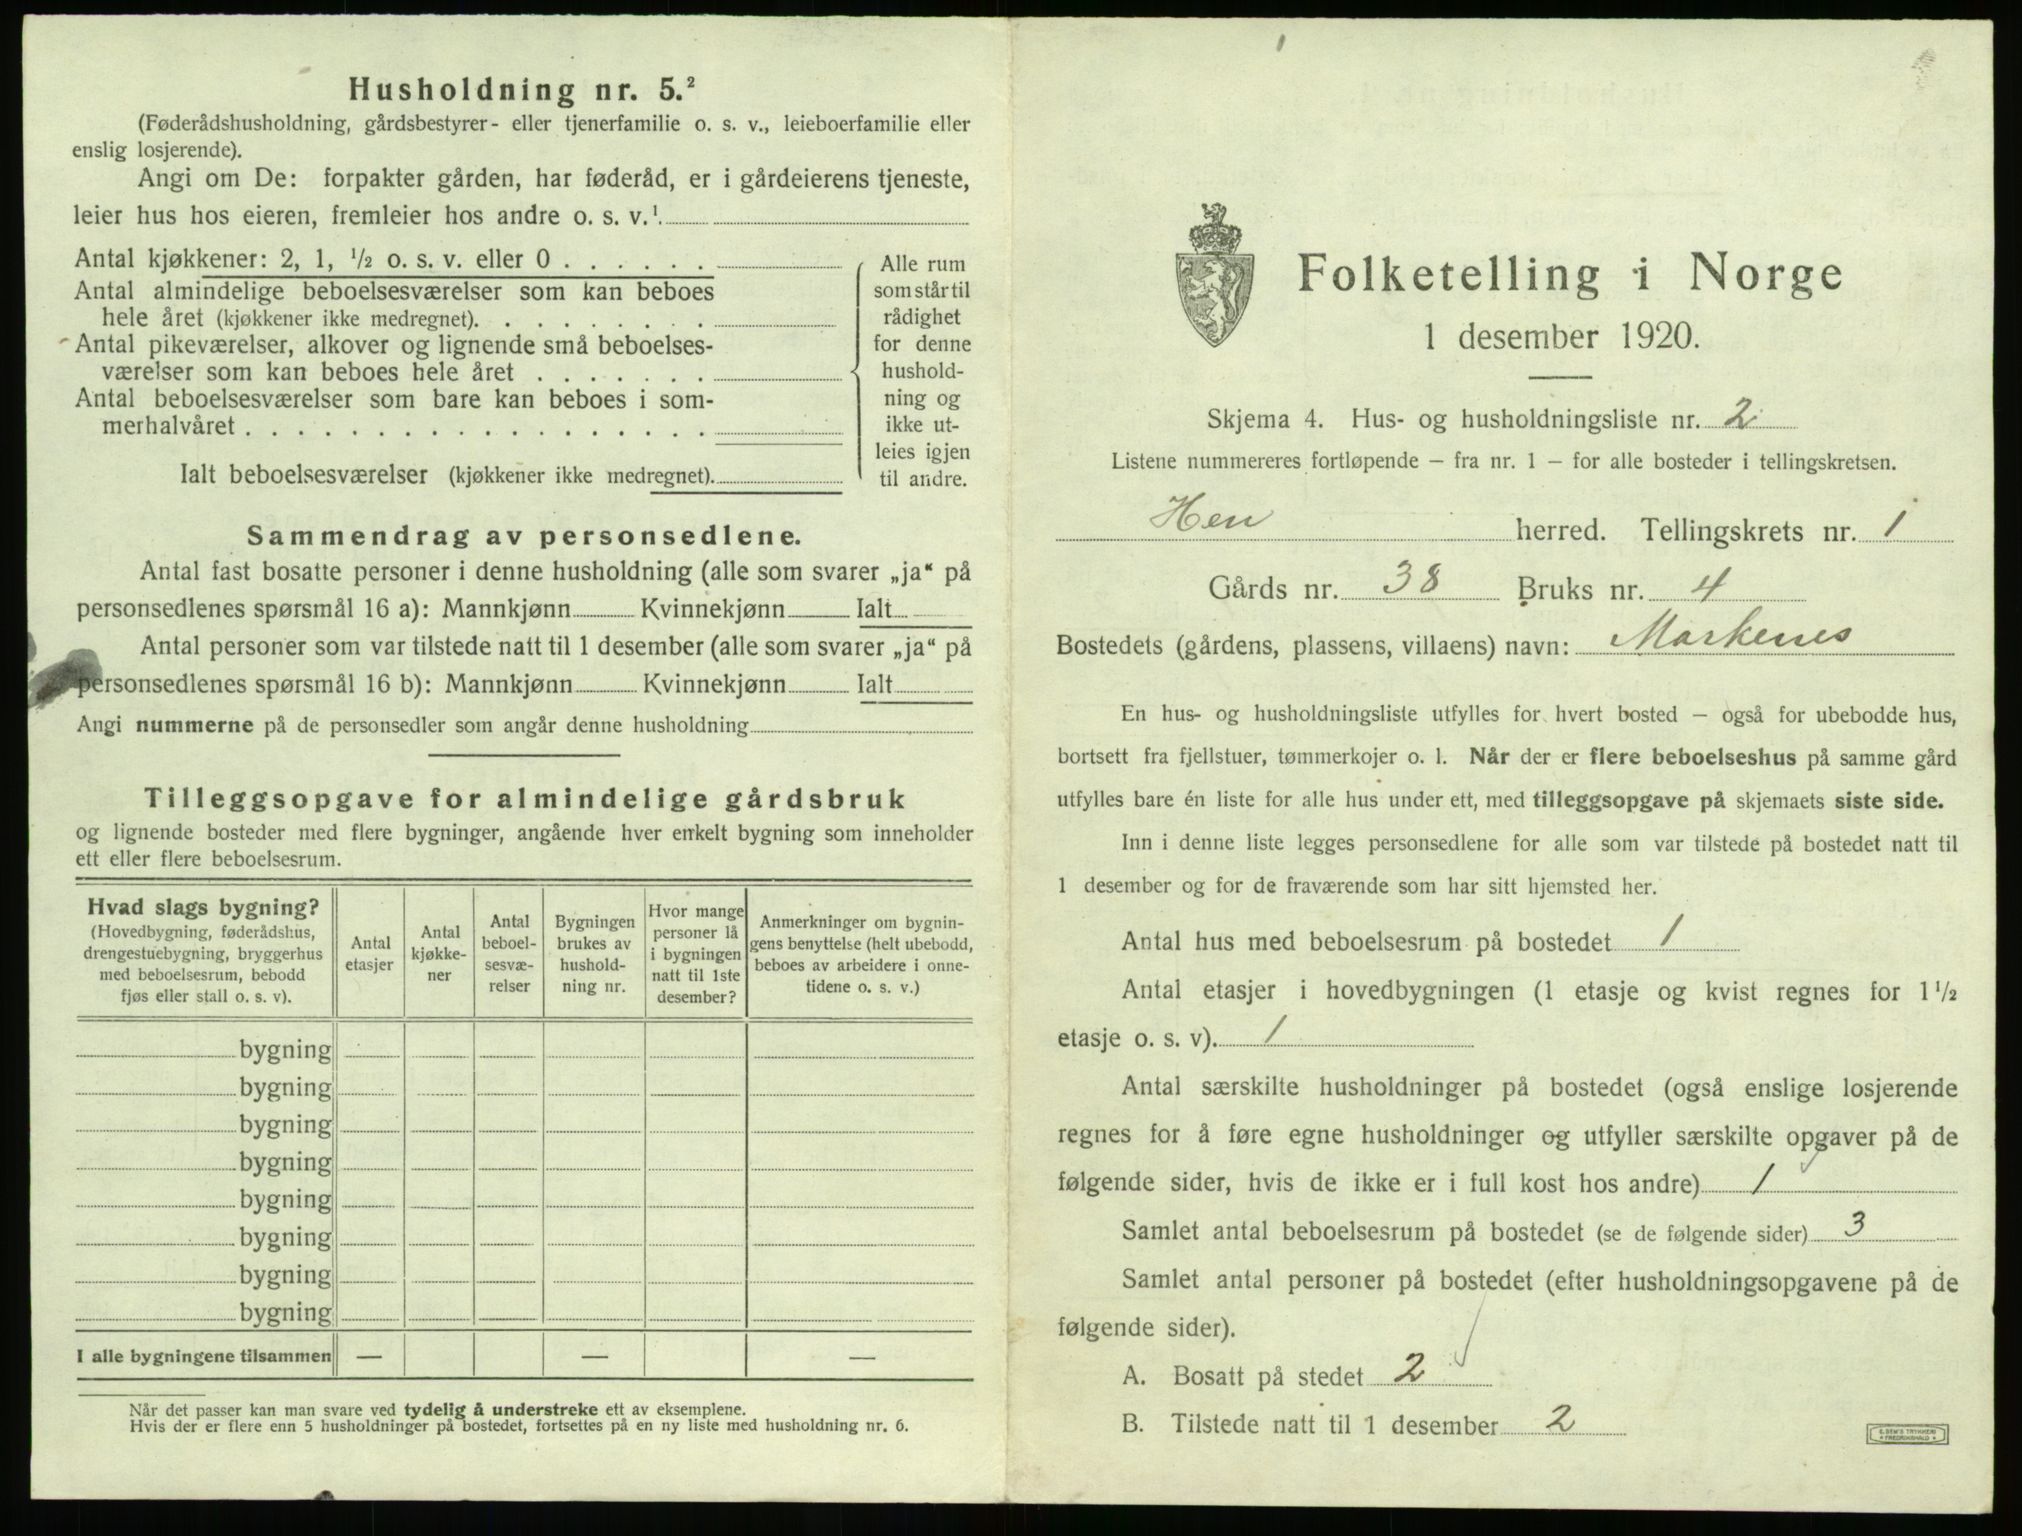 Husholdning nr. 5.²
(Føderådshusholdning, gårdsbestyrer- eller tjenerfamilie o. s. v., leieboerfamilie eller
enslig losjerende).
Angi om De: forpakter gården, har føderåd, er i gårdeierens tjeneste,
leier hus hos eieren, fremleier hos andre o. s. v.¹.
Antal kjøkkener: 2, 1, ½ o. s. v. eller 0 . . . . . .
Antal almindelige beboelsesværelser som kan beboes
hele året (kjøkkener ikke medregnet). . . . . . . . .
Antal pikeværelser, alkover og lignende små beboelses-
værelser som kan beboes hele året . . . . . . .
Antal beboelsesværelser som bare kan beboes i som-
merhalvåret . . . . . . . . . . . . . . . . . .
Ialt beboelsesværelser (kjøkkener ikke medregnet).
Alle rum
som står til
rådighet
for denne
hushold-
ning og
ikke ut-
leies igjen
til andre.
Sammendrag av personsedlene.
Antal fast bosatte personer i denne husholdning (alle som svarer „ja“ på
personsedlenes spørsmål 16 a): Mannkjønn Kvinnekjønn Ialt
Antal personer som var tilstede natt til 1 desember (alle som svarer „ja“ på
personsedlenes spørsmål 16 b): Mannkjønn Kvinnekjønn Ialt
Angi nummerne på de personsedler som angår denne husholdning
Tilleggsopgave for almindelige gårdsbruk
og lignende bosteder med flere bygninger, angående hver enkelt bygning som inneholder
ett eller flere beboelsesrum.
Hvad slags bygning?
(Hovedbygning, føderådshus,
drengestuebygning, bryggerhus
med beboelsesrum, bebodd
fjøs eller stall o. s. v).
Antal
etasjer
Antal
kjøkke-
ner
Antal
beboel-
sesvæ-
relser
Bygningen
brukes av
hushold-
ning nr.
Hvor mange
personer lå
i bygningen
natt til 1ste
desember?
Anmerkninger om bygnin-
gens benyttelse (helt ubebodd,
beboes av arbeidere i onne-
tidene o. s. v.)
bygning
bygning
bygning
bygning
bygning
bygning
bygning
bygning
I alle bygningene tilsammen — — —
Når det passer kan man svare ved tydelig å understreke ett av eksemplene.
Hvis der er flere enn 5 husholdninger på bostedet, fortsettes på en ny liste med husholdning nr. 6.
Folketelling i Norge
1 desember 1920.
Skjema 4. Hus- og husholdningsliste nr. 2
Listene nummereres fortløpende – fra nr. 1 – for alle bosteder i tellingskretsen.
Hen herred. Tellingskrets nr. 1
Gårds nr. 38 Bruks nr. 4
Bostedets (gårdens, plassens, villaens) navn: Markenes
En hus- og husholdningsliste utfylles for hvert bosted – også for ubebodde hus,
bortsett fra fjellstuer, tømmerkojer o. l. Når der er flere beboelseshus på samme gård
utfylles bare én liste for alle hus under ett, med tilleggsopgave på skjemaets siste side.
Inn i denne liste legges personsedlene for alle som var tilstede på bostedet natt til
1 desember og for de fraværende som har sitt hjemsted her.
Antal hus med beboelsesrum på bostedet 1
Antal etasjer i hovedbygningen (1 etasje og kvist regnes for 1½
etasje o. s. v). 1
Antal særskilte husholdninger på bostedet (også enslige losjerende
regnes for å føre egne husholdninger og utfyller særskilte opgaver på de
følgende sider, hvis de ikke er i full kost hos andre) 1
Samlet antal beboelsesrum på bostedet (se de følgende sider) 3
Samlet antal personer på bostedet (efter husholdningsopgavene på de
følgende sider).
A. Bosatt på stedet 2
B. Tilstede natt til 1 desember 2
E. SEM'S TRYKKERI
* FREDRIKSHALD *